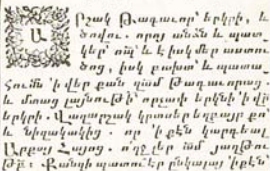 Արշակ Թագաւոր՝ երկրի, և
ծովու. որոյ անձն և պատ
կեր՝ որպ՛ և է իսկ մեր աստու
ծոց, իսկ բախտ՝ և պատա
հումն ՝ի վեր քան զամ Թագաւորաց.
և մտաց լայնութի՝ որչափ երկնի ՝ի վր
երկրի. Վաղարշակ կրտսեր եղբայր քո
և նիզակակից. որ ՝ի քէն կարգեալ
Արքայ Հայոց. ողջ լեր ամ յաղթու
թբ։ Քանզի պատուէր ընկալայ ՝ի քէն